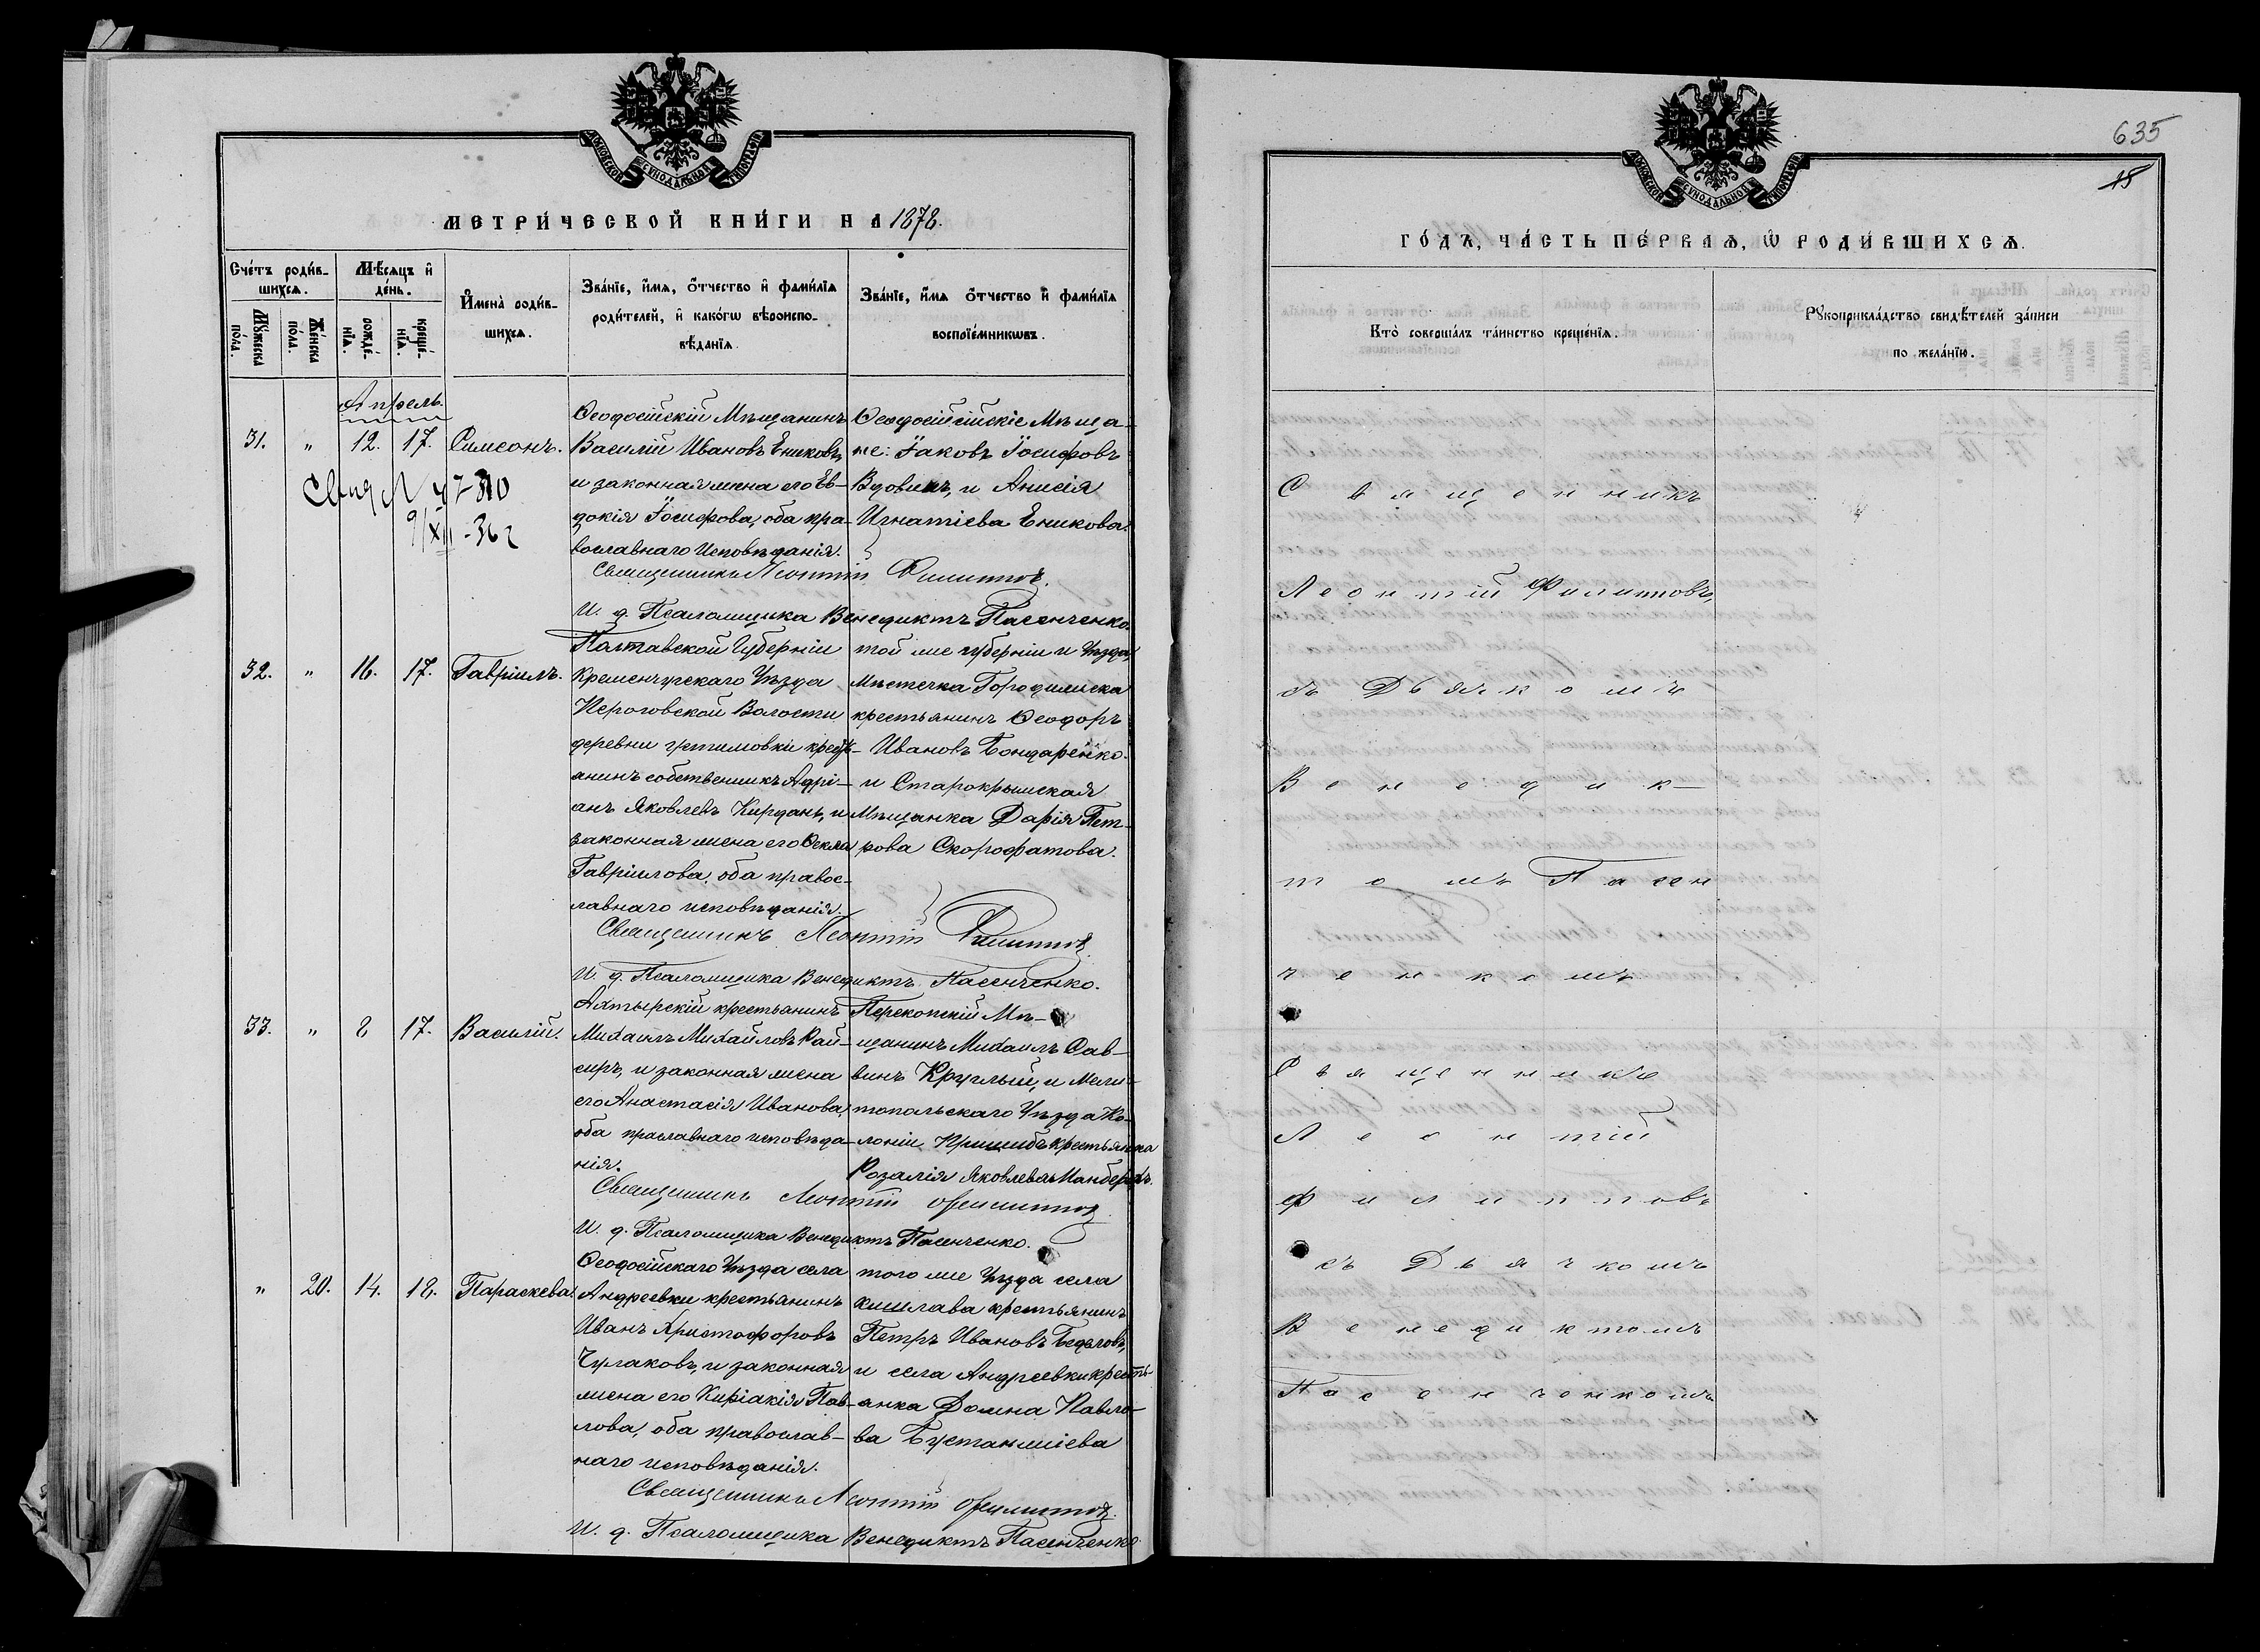 МОСКОВСКОЙ СѴНОДАЛЬНОЙ ТИПОГРАФІИ
МЕТРИ́ЧЕСКОЙ КНИ́ГИ НА 1878.
Сче́тъ роди́в-
шихсѧ.
Мѣ́сѧцъ и҆
де́нь.
Мꙋ́жеска
по́ла.
Же́нска
по́ла.
рожде́-
нїѧ.
креще́-
нїѧ.
И҆мена̀ роди́в-
шихсѧ.
Зва́нїе, и҆́мѧ, ѻ҆́тчество и҆ фами́лїѧ
роди́телей, и҆ како́гѡ вѣроиспо-
вѣ́данїѧ.
Зва́нїе, и҆́мѧ ѻ҆́тчество и҆ фами́лїѧ
воспрїе́мникѡвъ.
Апрель.
31. " 12. 17. Симеонъ.
Ѳеодосійскій Мѣщанинъ
Василій Ивановъ Ениковъ,
и законная жена его Ев-
докія Іосифова, оба пра-
вославнаго Исповѣданія.
Ѳеодосійсійскіе Мѣща-
не: Іаковъ Іосифовъ
Вдовинъ, и Анисія
Игнатіева Еникова.
9/XII - 36 г
Священникъ Леонтій Филипповъ.
И. д. Псаломщика Венедиктъ Пасенченко.
32. " 16. 17. Гавріилъ.
Полтавской Губерніи
Кременчугскаго Уѣзда
Волости
деревни крестья-
нинъ собственникъ Адрі-
анъ Яковлевъ Кирданъ, и
законная жена его Ѳекла
Гавріилова, оба правос-
лавнаго исповѣданія.
той же губерніи и Уѣзда,
Мѣстечка Городижска
крестьянинъ Ѳеодоръ
Ивановъ Бондаренко.
и Старокрымская
Мѣщанка Дарія Пет-
рова Скорофатова.
Священникъ Леонтій Филипповъ
И. д. Псаломщика Венедиктъ Пасенченко.
33. " 8 17. Василій.
Ахтырскій крестьянинъ
Михаилъ Михайловъ
и законная жена
его Анастасія Иванова,
оба праславнаго исповѣда-
нія.
Перекопскій Мѣ-
щанинъ Михаилъ Сав-
винъ Круглый, и Мели-
топольскаго Уѣзда Ко-
лоніи Пришибъ крестьянка
Розалія Яковлева
Священникъ Леонтій Филипповъ
И. д. Псаломщика Венедиктъ Пасенченко.
" 20. 14. 18. Параскева.
Ѳеодосійскаго Уѣзда села
Андреевки крестьянинъ
Иванъ Христофоровъ
Чулаковъ, и законная
жена его Киріакія Пав-
лова, оба православ-
наго исповѣданія.
того же Уѣзда села
кишлава крестьянинъ
Петръ Ивановъ
и села Андреевки кресть-
янка Домна Павло-
ва
Священникъ Леонтій Филипповъ.
И. д. Псаломщика Венедиктъ Пасенченко.
635
18
МОСКОВСКОЙ СѴНОДАЛЬНОЙ ТИПОГРАФІИ
ГО́ДЪ, ЧА́СТЬ ПЕ́РВАѦ, Ѽ РОДИ́ВШИХСѦ.
Кто̀ соверша́лъ та́инство креще́нїѧ.
Рꙋкоприкла́дство свидѣ́телей за́писи
по жела́нїю.
Священникъ
Леонтій Филипповъ,
съ Дьячкомъ
Венедик-
томъ Пасен
ченкомъ.
Священникъ
Леонтій
Филипповъ
съ Дьячкомъ
Венедиктомъ
Пасенченкомъ